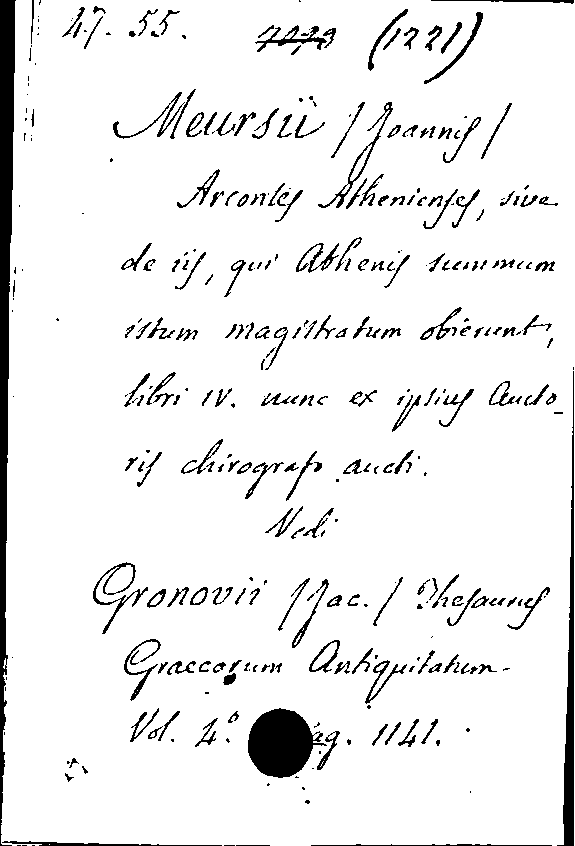 47. 55. (1221)
Meursii /Joannis/
Arcontes Athenienses, sive
de iis, qui Athenis summum
istum magistratum obierunt,
libri IV. nunc ex ipsius Aucto-
ris chirografo aucti.
Vedi
Gronovii /Jac./ Thesaurus
Graecorum Antiquitatum.
Vol. 4.° pag. 1141.